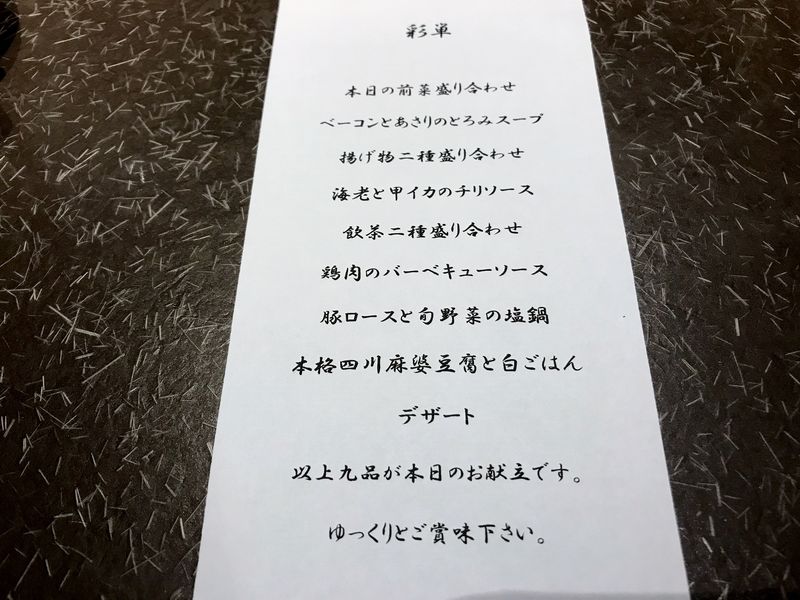 彩単
本日の前菜盛り合わせ
ベーコンとあさりのとろみスープ
揚げ物二種盛り合わせ
海老と甲イカのチリソース
飲茶二種盛り合わせ
鶏肉のバーベキューソース
豚ロースと旬野菜の塩鍋
本格四川麻婆豆腐と白ごはん
デザート
以上九品が本日のお献立です。
ゆっくりとご賞味下さい。